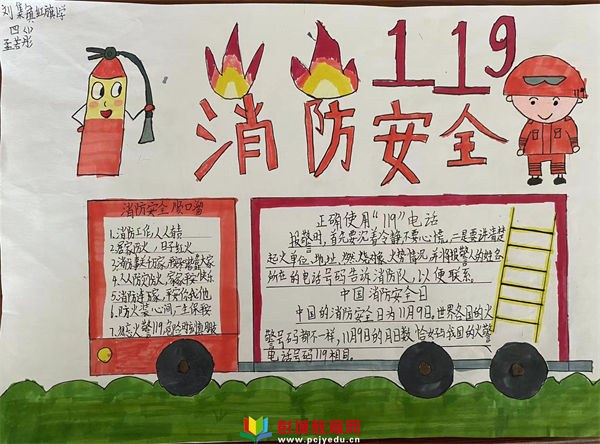 刘集镇红旗学
四(1)
孟若彤
119
消防安全
消防安全顺口溜
1.消防工作人人转
2.家家防火，日子红火
3.消防事关万家，平安
4.人人防灾防火，家家快乐
5.消防连万家，平安你我他
6.防火装心间，一生保平安
正确使用“119”电话
报警时，首先要沉着冷静，不要心慌，二是要讲清楚
起火单位、地址、燃烧对象、火势情况，并将报警人的姓名
所在的电话号码告诉消防队，以便联系。
中国消防安全日
中国的消防安全日为11月9日，世界各国的火
警号码都不一样，11月9日的月日数恰好与我国的火警
电话号码119相同。
彭城教育网
www.pcjyedu.cn